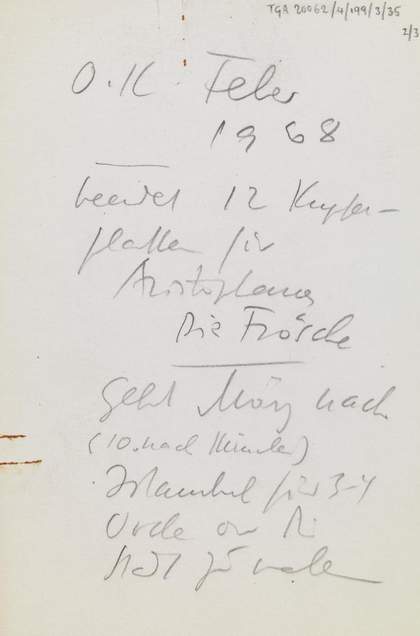 TGA 20062/4/199/3/35
2/3
O.K Febr
1968
beendet 12 Kupfer-
platten für
Aristophanes
Die Frösche
Geht März nach
(10. nach München)
Istanbul für 3-4
um die
Stadt zu malen